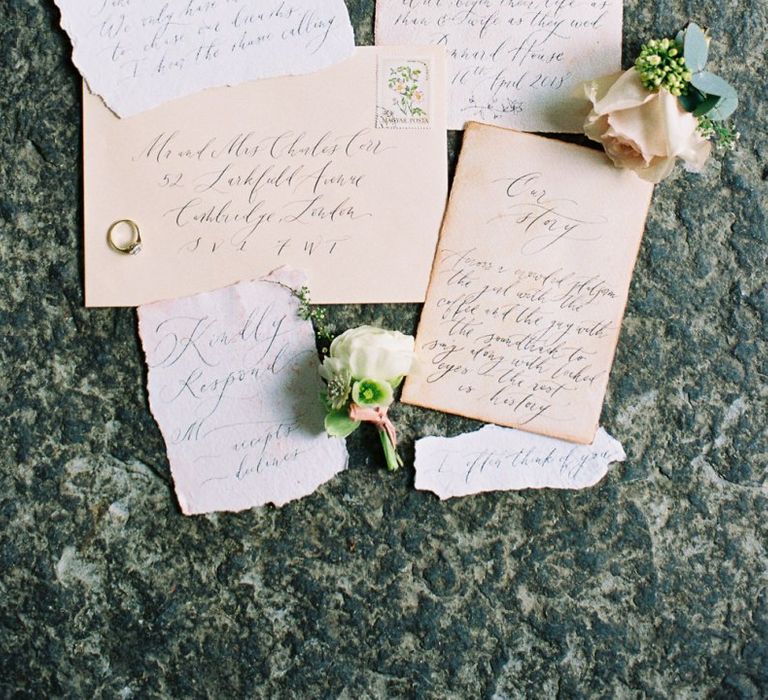 We only have
to chase our dreams
I hear the music calling
as they wed
House
10th April 2018
MAGYAR POSTA
Mr and Mrs Charles Carr
52 Larkfield Avenue
Cambridge, London
SV1 7WT
Our
story
Across a crowded platform
the girl with the
coffee and the guy with
the soundtrack to
sing along with locked
eyes - the rest
is history
Kindly
Respond
M
accepts
declines
I often think of you